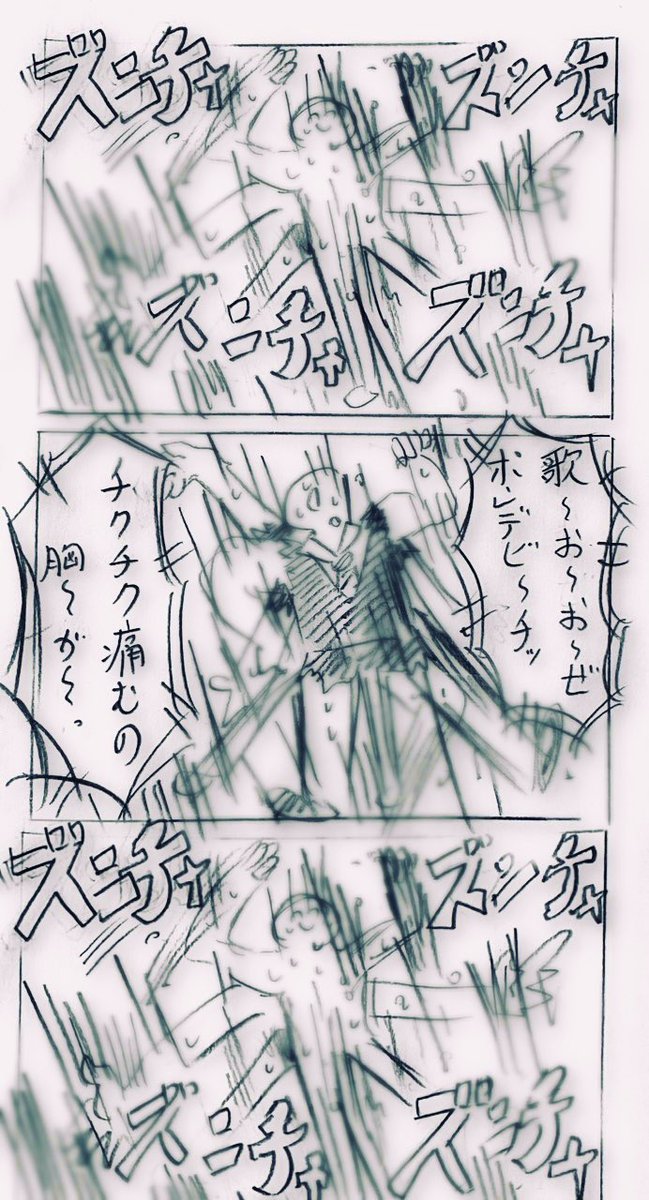 ズンチャ
ズンチャ
ズンチャ
ズンチャ
歌〜お〜お〜ぜ
チクチク痛むの
胸〜が〜っ
ズンチャ
ズンチャ
ズンチャ
ズンチャ